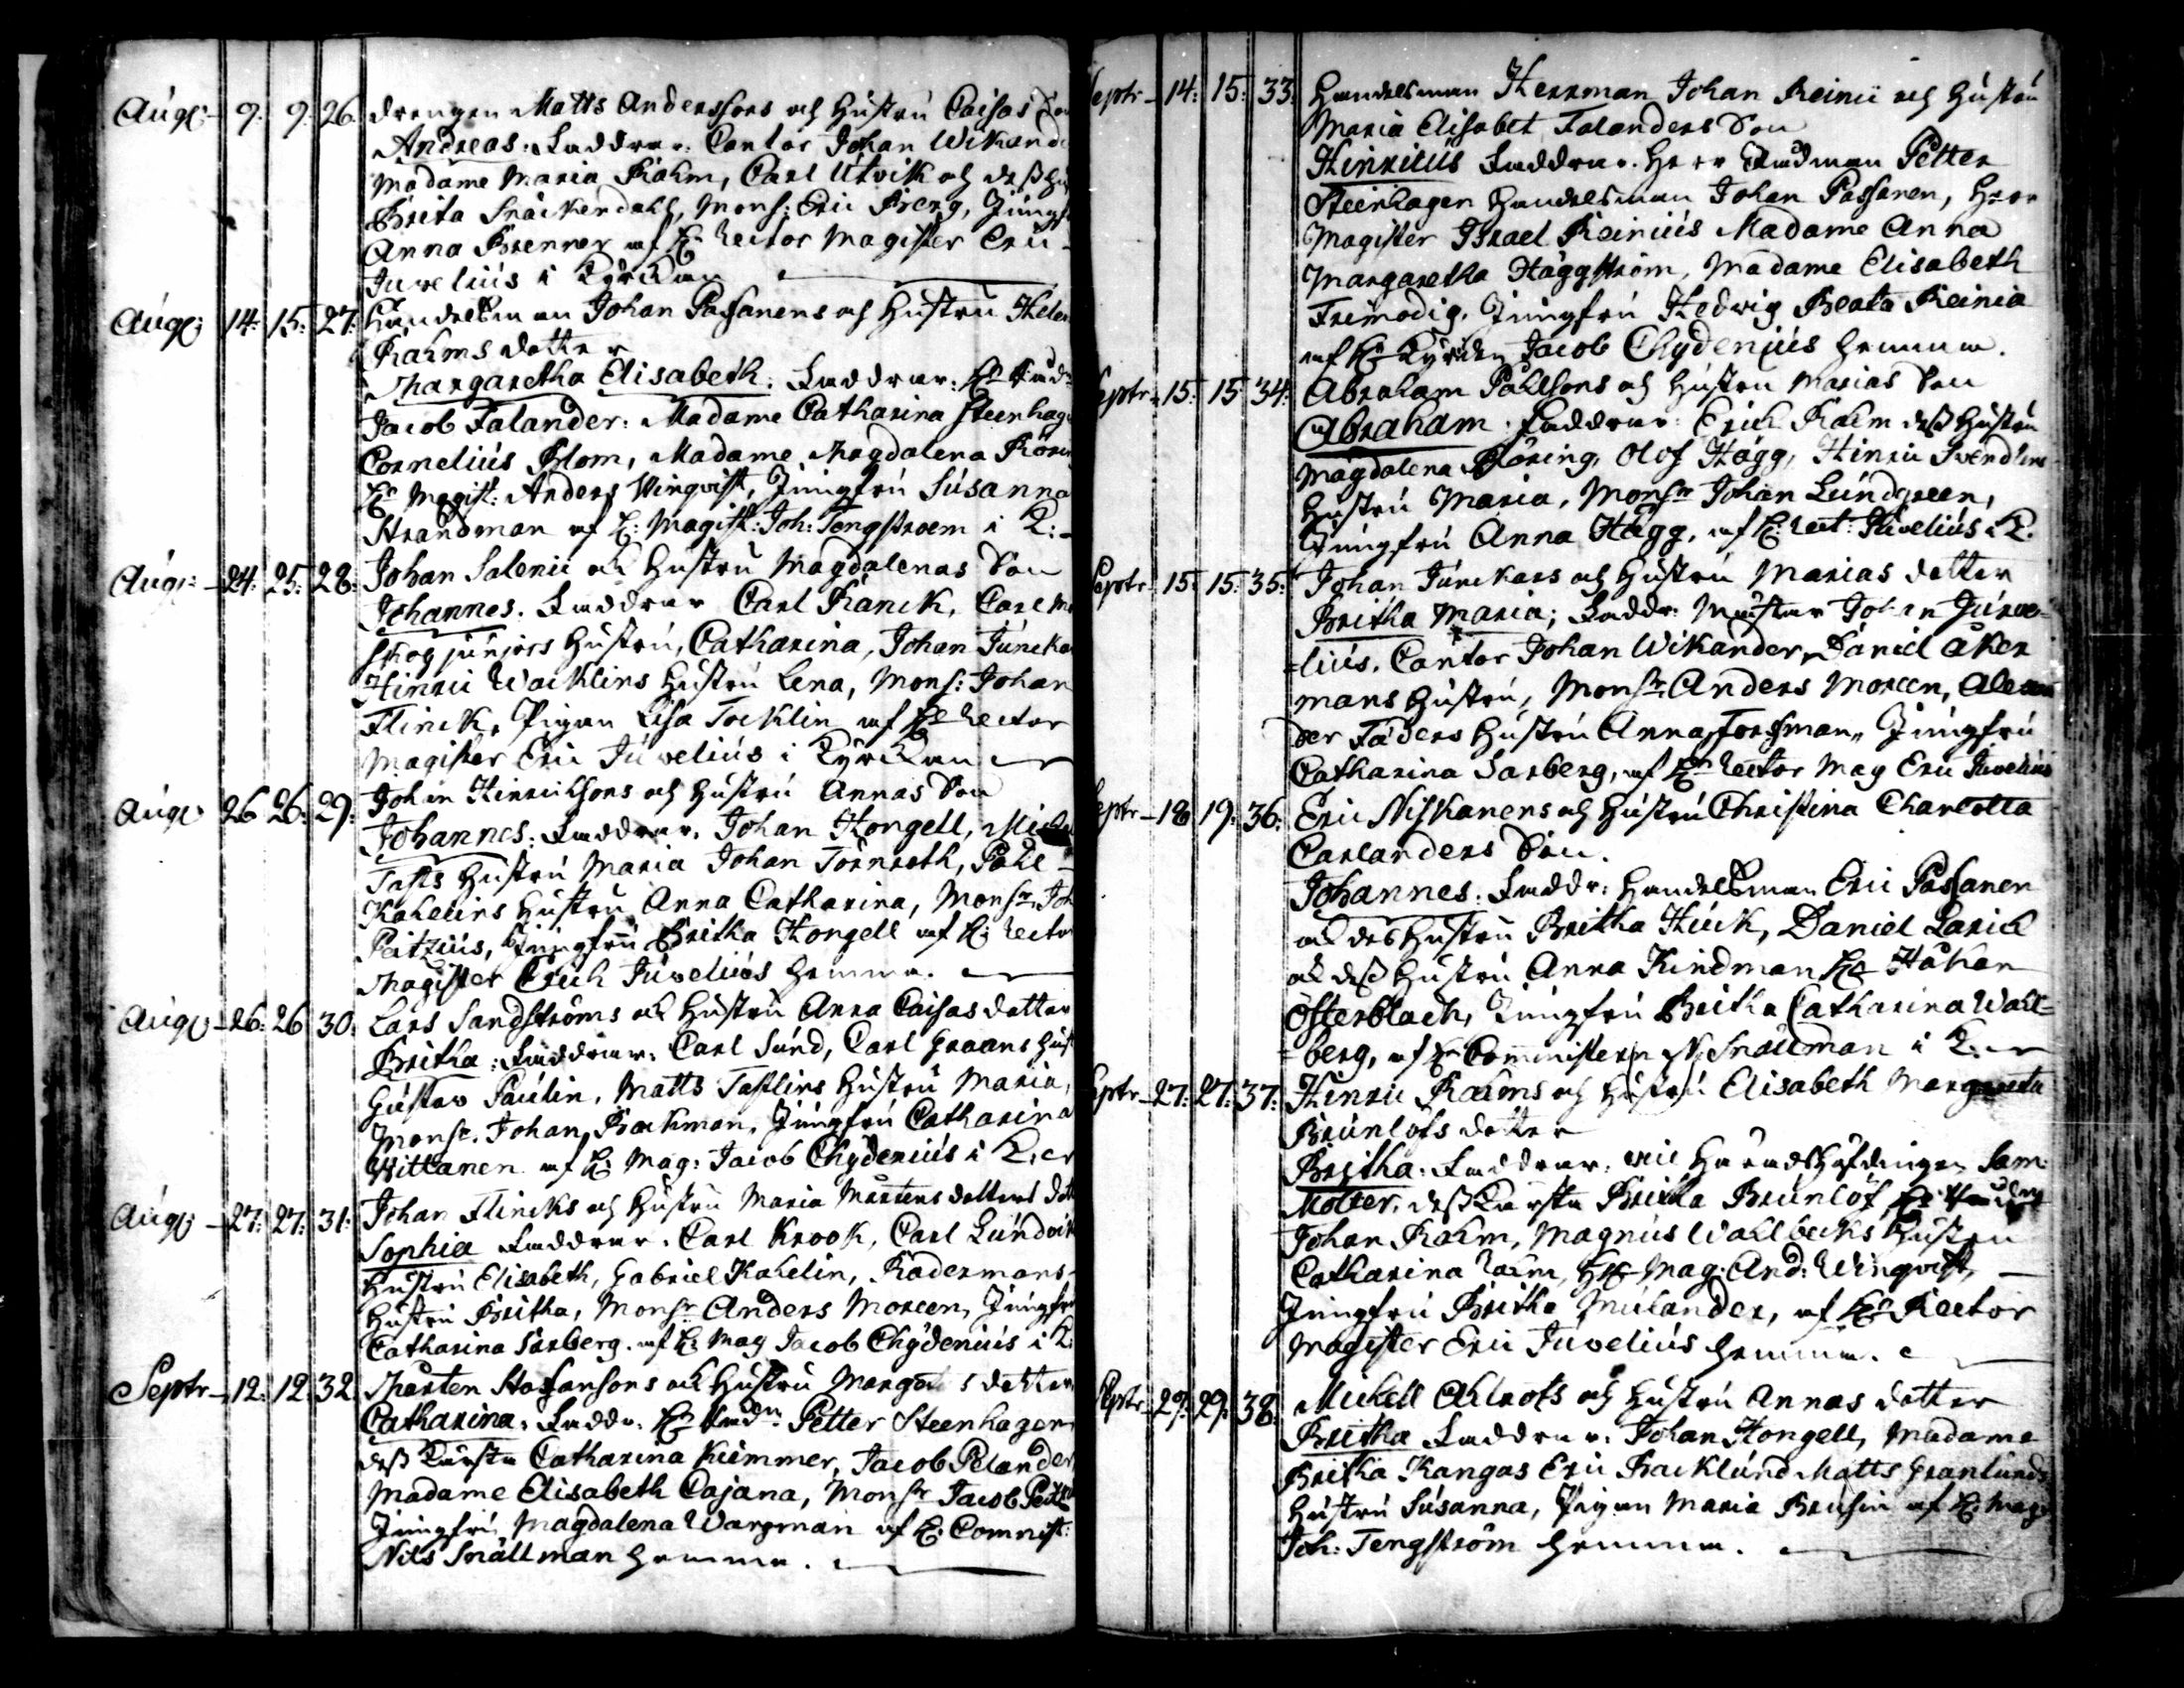 Augs: 9. 9. 26. drengen Matts Anderssons och hustru Caisas Son
Andreas. Faddrar. Cantor Johan Wikand
Madame Maria Rahm, Carl Utvik och dess hu
Brita Snäckendahl, Mons: Eric Berg, Jungf
Anna Brenner af Hr Rector Magister Eric
Juvelius i Kyrckan
Augs: 14. 15. 27. Handelsman Johan Passanens och Hustru Helen
Rahms dotter
Margaretha Elisabeth. Faddrar. Hr Rådm
Jacob Falander. Madame Catharina Steenhag
Cornelius Blom, Madame Magdalena
Hr Magist: Anders Winqvist, Jungfru Susanna
Strandman af H: Magist: Joh: Tengstroem i K:
Augs: 24. 25. 28. Johan Salenii och Hustru Magdalenas Son
Johannes. Faddrar Carl Ranck, Carl
skog junjors Hustru, Catharina, Johan Juncka
Hinric Wacklins Hustru Lena, Mons: Johan
Flinck, Pigan Lisa Tocklin af Hr Rector
Magister Eric Juvelius i Kyrckan
Augs: 26 26. 29. Johan Hinricksons och Hustru Annas Son
Johannes. Faddrar. Johan Kongell,
Tasts Hustru Maria Johan Törnroth, Pahl
Kahelins Hustru Anna Catharina, Monsr. Joh
Peitzius, Jungfru Britha Kongell af H: Rector
Magister Erich Juvelius hemma.
Augs: 26. 26 30. Lars Sandströms och Hustru Anna Caisas dotter
Britha. Faddrar. Carl Sund, Carl Graans Hust
Gustav Paulin, Matts Tastlins Hustru Maria,
Monsr. Johan Backman, Jungfru Catharina
Wittanen af H: Mag: Jacob Chydenius i K.
Augs: 27. 27. 31. Johan Flincks och Hustru Maria Mårtens dotters dott
Sophia Faddrar. Carl Krook, Carl Lundvik
Hustru Elisabeth, Gabriel Kahelin, Rådermans
Hustru Britha, Monsr Anders Moreen, Jungfru
Catharina Sarberg. af H: Mag Jacob Chydenius i K.
Septr 12. 12 32. Mårten Staffansons och Hustru Marg s dotter
Catharina. Faddr. Hr Rådm Petter Steenhagen
dess Kiersta Catharina Kiemmer, Jacob Pelander
Madame Elisabeth Cajana, Monsr Jacob
Jungfru Magdalena Wargman af H: Comnist:
Nils Snällman hemma.
Septr 14. 15. 33. Handelsman Herrman Johan Reinii och Hustru
Maria Elisabet Falanders Son
Hinricus Faddrar. Herr Rådman Petter
Steenhagen Handelsman Johan Passanen, Herr
Magister Israel Reinius Madame Anna
Margaretha Häggström, Madame Elisabeth
Frimodig, Jungfru Hedwig Beata Reinia
af Hr Kyrckoh Jacob Chydenius hemma.
Septr 15. 15 34. Abraham Påhlsons och Hustru Marias Son
Abraham. Faddrar. Erich Rahm dess Hustru
Magdalena Röring, Olof Hägg, Hinric Svendlins
Hustru Maria, Monsr Johan Lundgreen,
Jungfru Anna Hägg, af H: Rect: Juvelius i K.
Septr 15. 15. 35. Johan Junckars och Hustru Marias dotter
Britha Maria; Faddr: Mästar Johan Juve=
=lius. Cantor Johan Wikander, Daniel Åker
mans Hustru, Monsr. Anders Moreen, Alexan
der Fäders Hustru Anna Forssman, Jungfru
Catharina Sarberg, af Hr Rector Mag Eric Juvelius
Septr 18 19. 36. Eric Niskanens och Hustru Christina Charlotta
Carlanders Son.
Johannes. Faddr: Handelsman Eric Passanen
och des Hustru Britha Huck, Daniel Larick
och dess Hustru Anna Kindman Hr Håkan
Österblach, Jungfru Britha Catharina Wahl=
=berg, af Hr Comministern N: Snällman i K.
Septr 27. 27. 37. Hinric Rahms och Hustru Elisabeth Margareta
Brunlöfs dotter
Britha. Faddrar. Häradshöfdingen Sam:
Molter, dess Kiersta Britha Brunlöf,
Johan Rahm, Magnus Wahlbecks Hustru
Catharina Rahm, Hr Mag: And: Winqvist,
Jungfru Britha Mulander, af Hr Rector
Magister Eric Juvelius hemma.
Septr 29. 29. 38. Mickell Ahlrots och Hustru Annas dotter
Britha Faddrar. Johan Kongell, Madame
Britha Kangas Eric Backlund Matts Granlunds
Hustru Susanna, Pigan Maria Brusin af H: Mag
Joh: Tengström hemma.